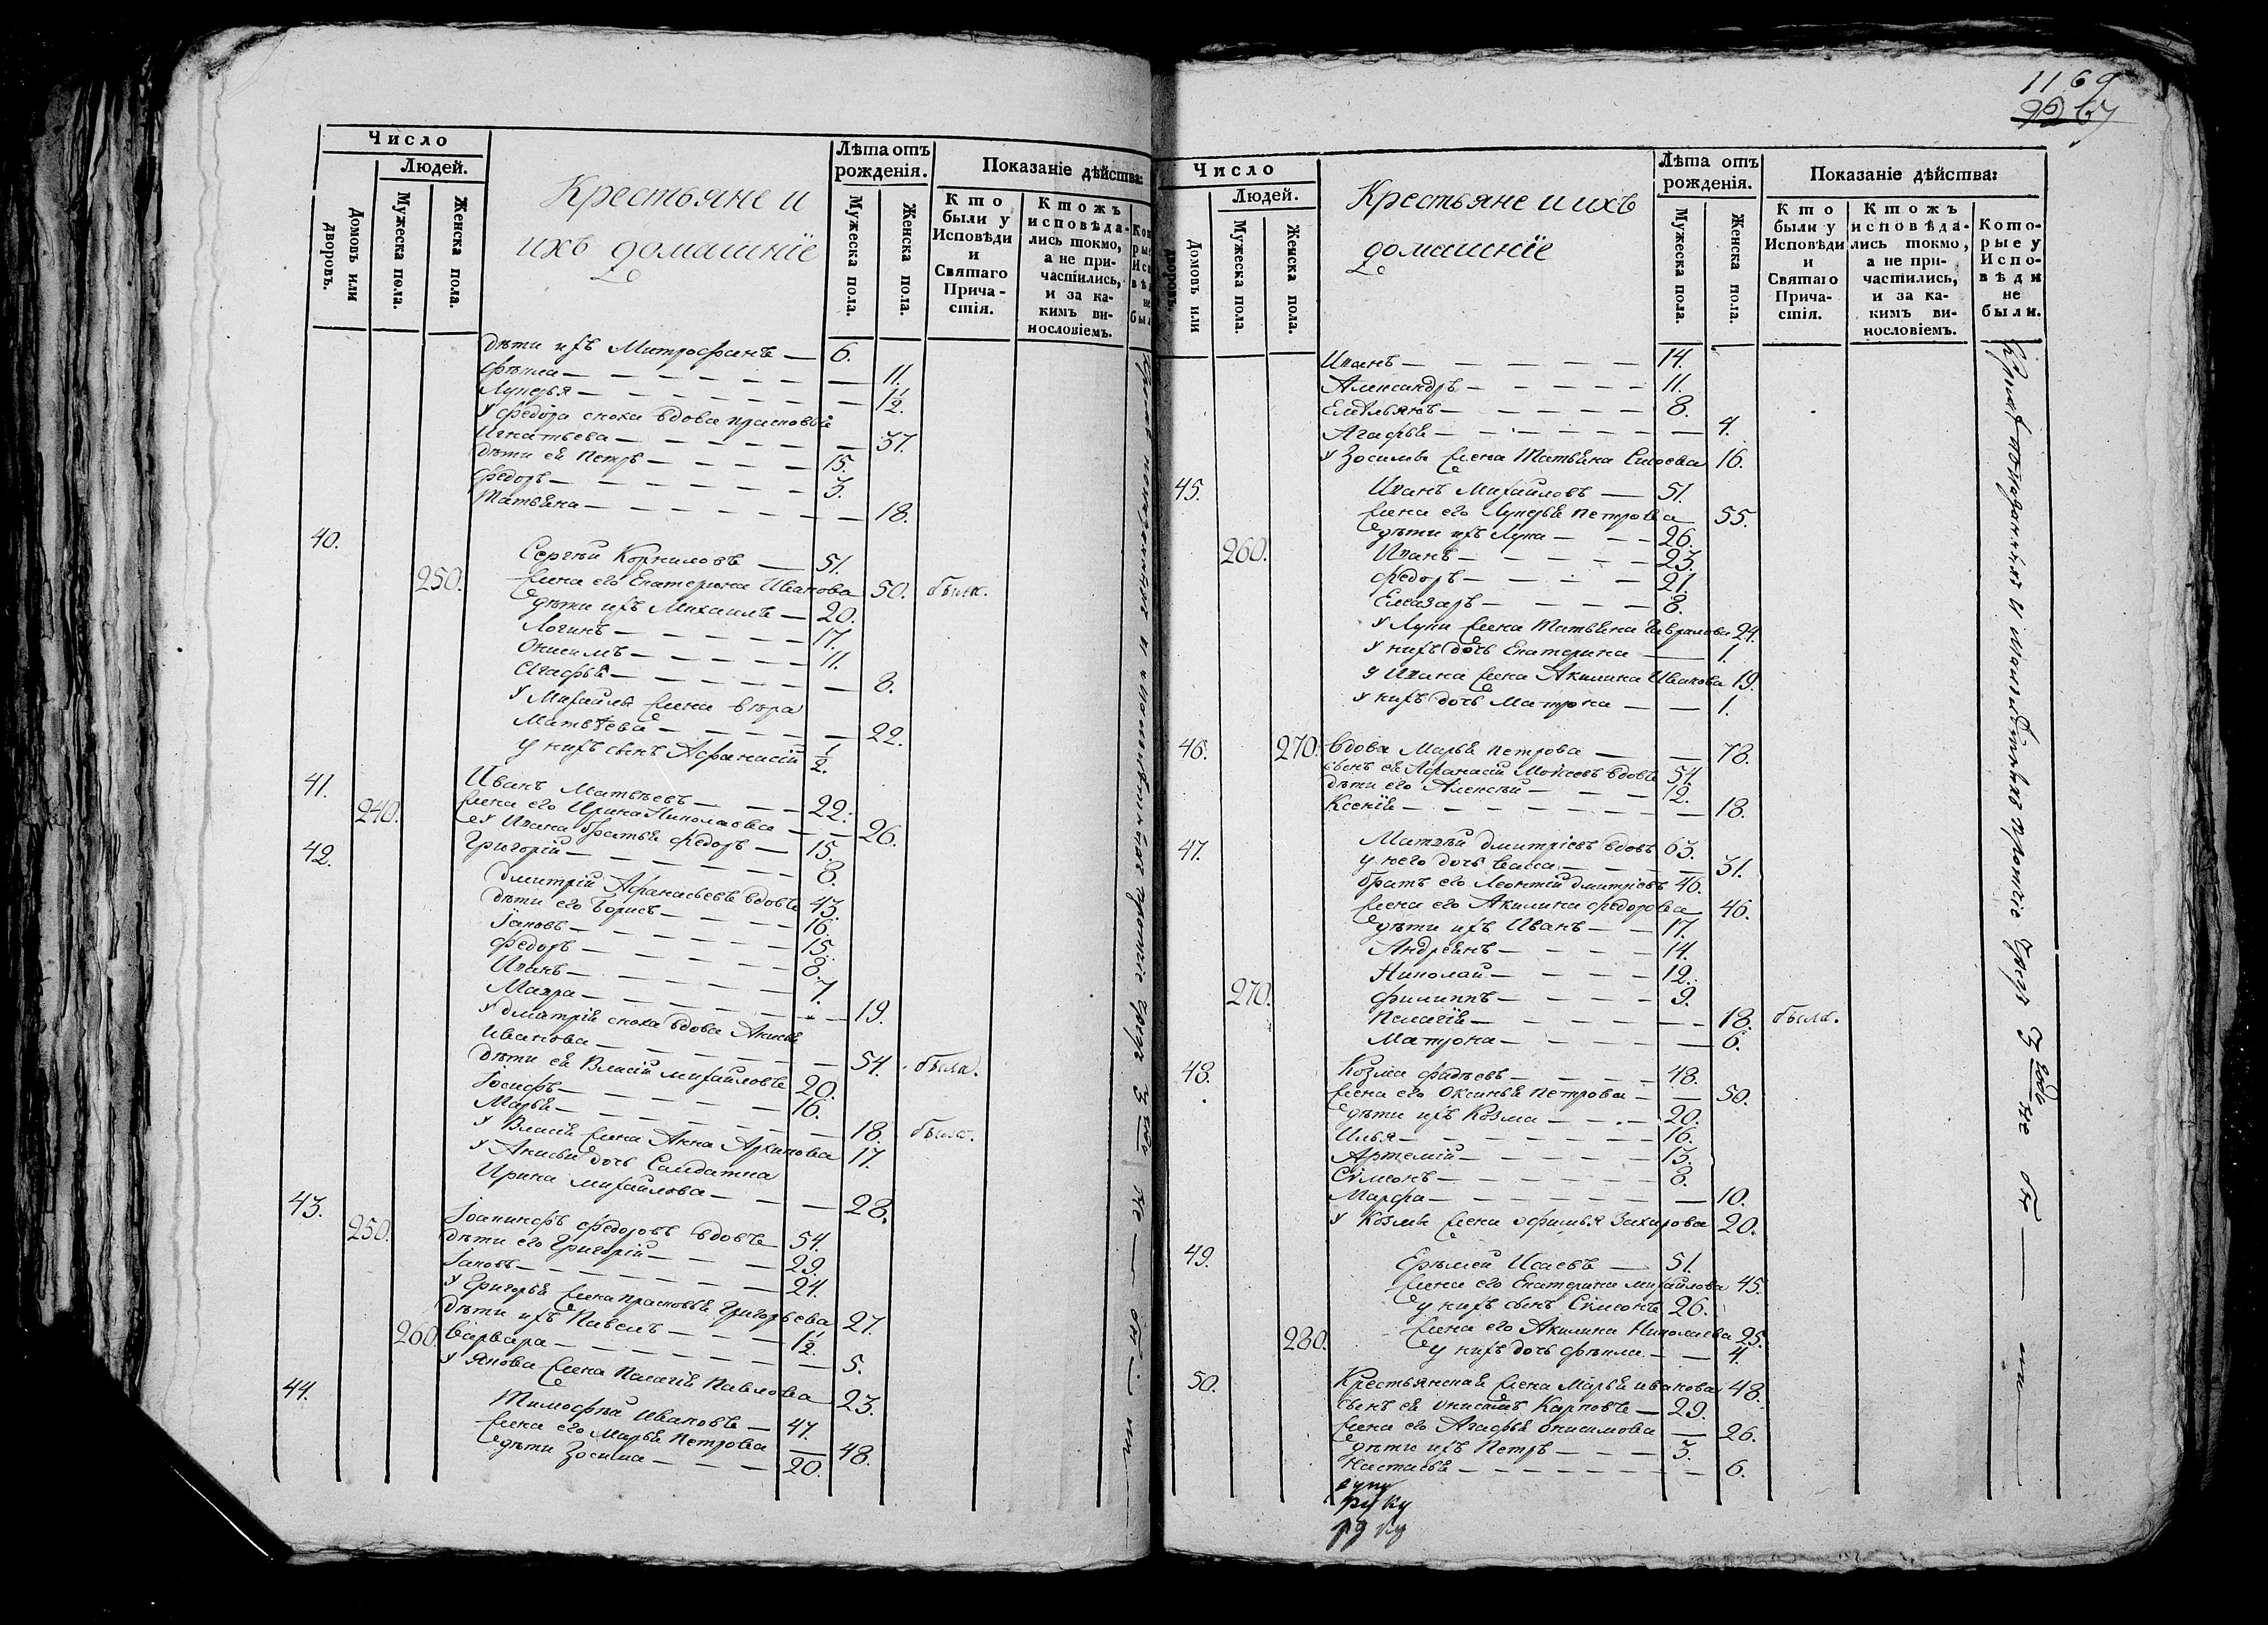 Число
Людей.
Домовъ или дворовъ.
Мужеска пола.
Женска пола.
Крестьяне и
ихъ домашніе
Лѣта отъ рожденія.
Мужеска пола.
Женска пола.
Показаніе дѣйства:
Кто были у Исповѣди и Святаго Прича-стія.
Ктожъ исповѣда-лись токмо, а не при-частились, и за ка-кимъ ви-нословіемъ.
дѣти ихъ Митрофанъ — 6.
Фѣкла — 11.
Лукерья — 1/2.
У Федора сноха вдова Прасковья
Игнатьева — 37.
дѣти ея Петръ — 15.
Федоръ — 3.
Татьяна — 18.
40. Сергѣй Корниловъ — 51.
250. Жена его Екатерина Иванова 50. была.
дѣти ихъ Михаилъ — 20.
Логинъ — 17.
Онисимъ — 11.
Агафья — 8.
У Михайлы жена Вѣра
Матвѣева — 22.
У нихъ сынъ Афанасій 1/2.
41. Иванъ Матвѣевъ — 22.
240. Жена его Ирина Николаева — 26.
У Ивана братья Федоръ — 15.
Григорій — 8.
42. Дмитрій Афанасьевъ вдовъ 43.
дѣти его Борисъ — 16.
Іаковъ — 15.
Федоръ — 8.
Иванъ — 7.
Мавра — 19.
У Дмитрія сноха вдова Анисья
Иванова — 54. была.
дѣти ея Власій Михайловъ 20.
Іосифъ — 16.
Марья — 18. была.
У Власія жена Анна Архипова 17.
У Анисьи дочь Солдатка
Ирина Михайлова — 28.
43. Іоаникфъ Федоровъ вдовъ 54.
250. дѣти его Григорій — 29.
Іаковъ — 24.
У Григорья жена Прасковья Григорьева 27.
дѣти ихъ Павелъ — 1 1/2.
260. Варвара — 5.
У Якова жена Пелагія Павлова 23.
44. Тимофѣй Ивановъ — 47.
Жена его Марья Петрова — 48.
дѣти Зосима — 20.
1169
Число
Людей.
Домовъ или дворовъ.
Мужеска пола.
Женска пола.
Крестьяне и ихъ
домашніе
Лѣта отъ рожденія.
Мужеска пола.
Женска пола.
Показаніе дѣйства:
Кто были у Исповѣди и Святаго Прича-стія.
Ктожъ исповѣда-лись токмо, а не при-частились, и за ка-кимъ ви-нословіемъ.
Кото-рые у Испо-вѣди не были.
Иванъ — 14.
Александръ — 11.
Емельянъ — 8.
Агафья — 4.
У Зосимы жена Татьяна Сысоева 16.
45. Иванъ Михайловъ — 51.
Жена его Лукерья Петрова 55.
дѣти ихъ Лука — 26.
260. Иванъ — 23.
Федоръ — 21.
Елеазаръ — 8.
У Луки жена Татьяна Гаврилова 24.
У нихъ дочь Екатерина — 1.
У Ивана жена Акилина Иванова 19.
У нихъ дочь Матрона — 1.
46. 270. Вдова Марья Петрова — 78.
сынъ ея Афанасій Моисеевъ вдовъ 54.
дѣти его Алексѣй — 12.
Ксенія — 18.
47. Матвѣй Дмитріевъ вдовъ 63.
У него дочь Васса — 31.
братъ его Леонтій Дмитріевъ 46.
Жена его Акилина Федорова 46.
дѣти ихъ Иванъ — 17.
Андреянъ — 14.
Николай — 12.
270. Филиппъ — 9.
Пелагія — 18. была.
Матрона — 6.
48. Козма Фадѣевъ — 48.
Жена его Оксинья Петрова — 50.
дѣти ихъ Козма — 20.
Илья — 16.
Артемій — 13.
Сѵмеонъ — 8.
Марфа — 10.
У Козмы жена Офимья Захарова 20.
49. Ерѣмей Исаевъ — 51.
Жена его Екатерина Михайлова 45.
У нихъ сынъ Сѵмеонъ 26.
Жена его Акилина Николаева 25.
280. У нихъ дочь Фѣкла — 4.
50. Крестьянская жена Марья Иванова 48.
сынъ ея Онисимъ Карповъ — 29.
Жена его Агафья Онисимова — 26.
дѣти ихъ Петръ — 3.
Настасья — 6.
руку